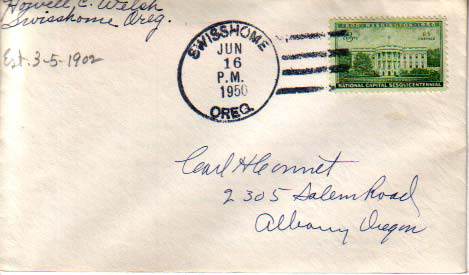 Howell, C. Welsh
Swisshome Oreg.
Est. 3-5-1902
SWISSHOME
JUN
16
P.M.
1950
OREG.
U.S.
POSTAGE
NATIONAL CAPITAL SESQUICENTENNIAL
Carl H
2305 Salem Road
Albany Oregon